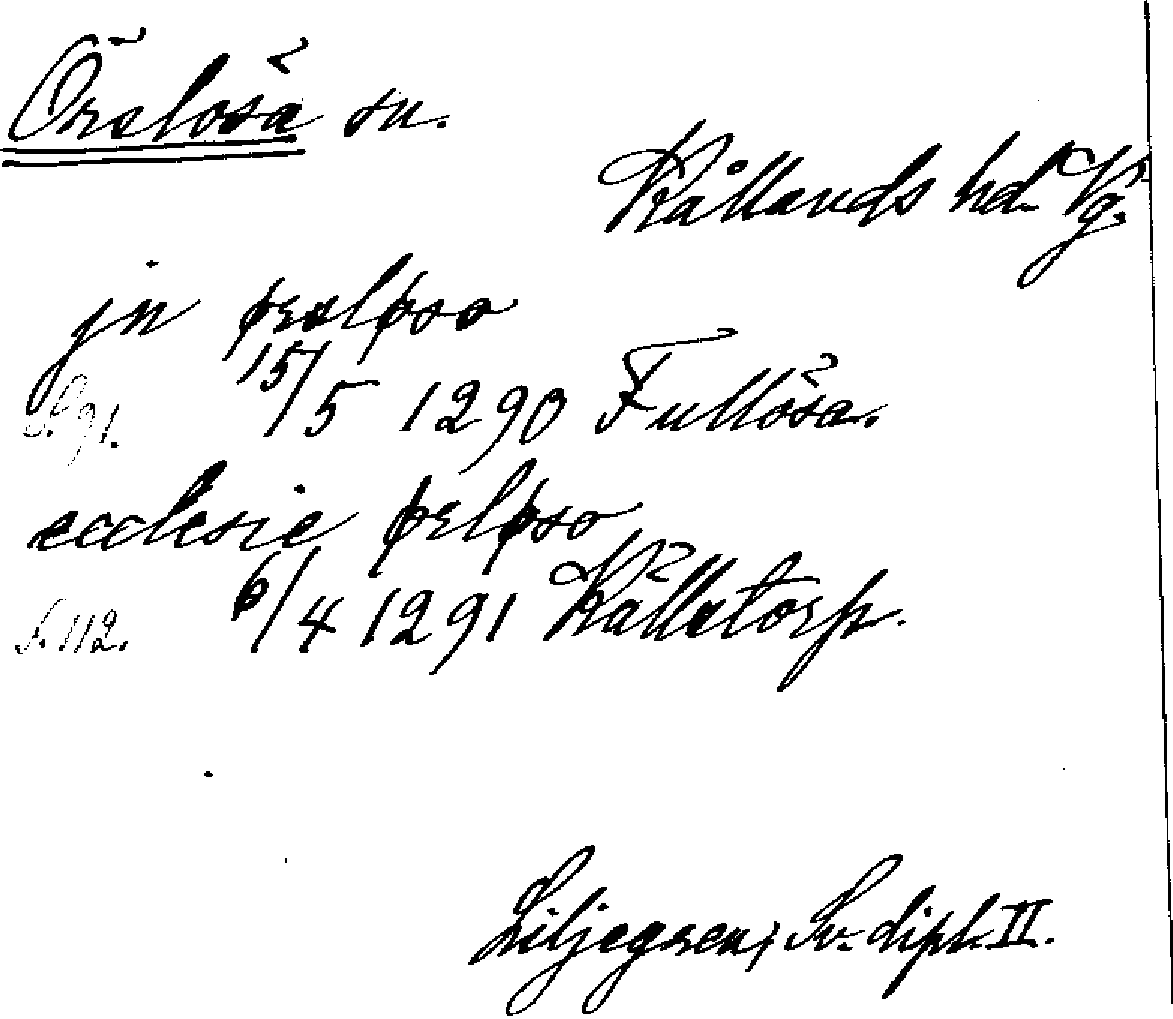 Örslösa sn.
Kållands hd. Vg.
jn ørsløso
S. 91. 15/5 1290 Fullösa.
ecclesie ørløso
S. 112. 6/4 1291 Källetorp.
Liljegren, Sv. dipl. II.